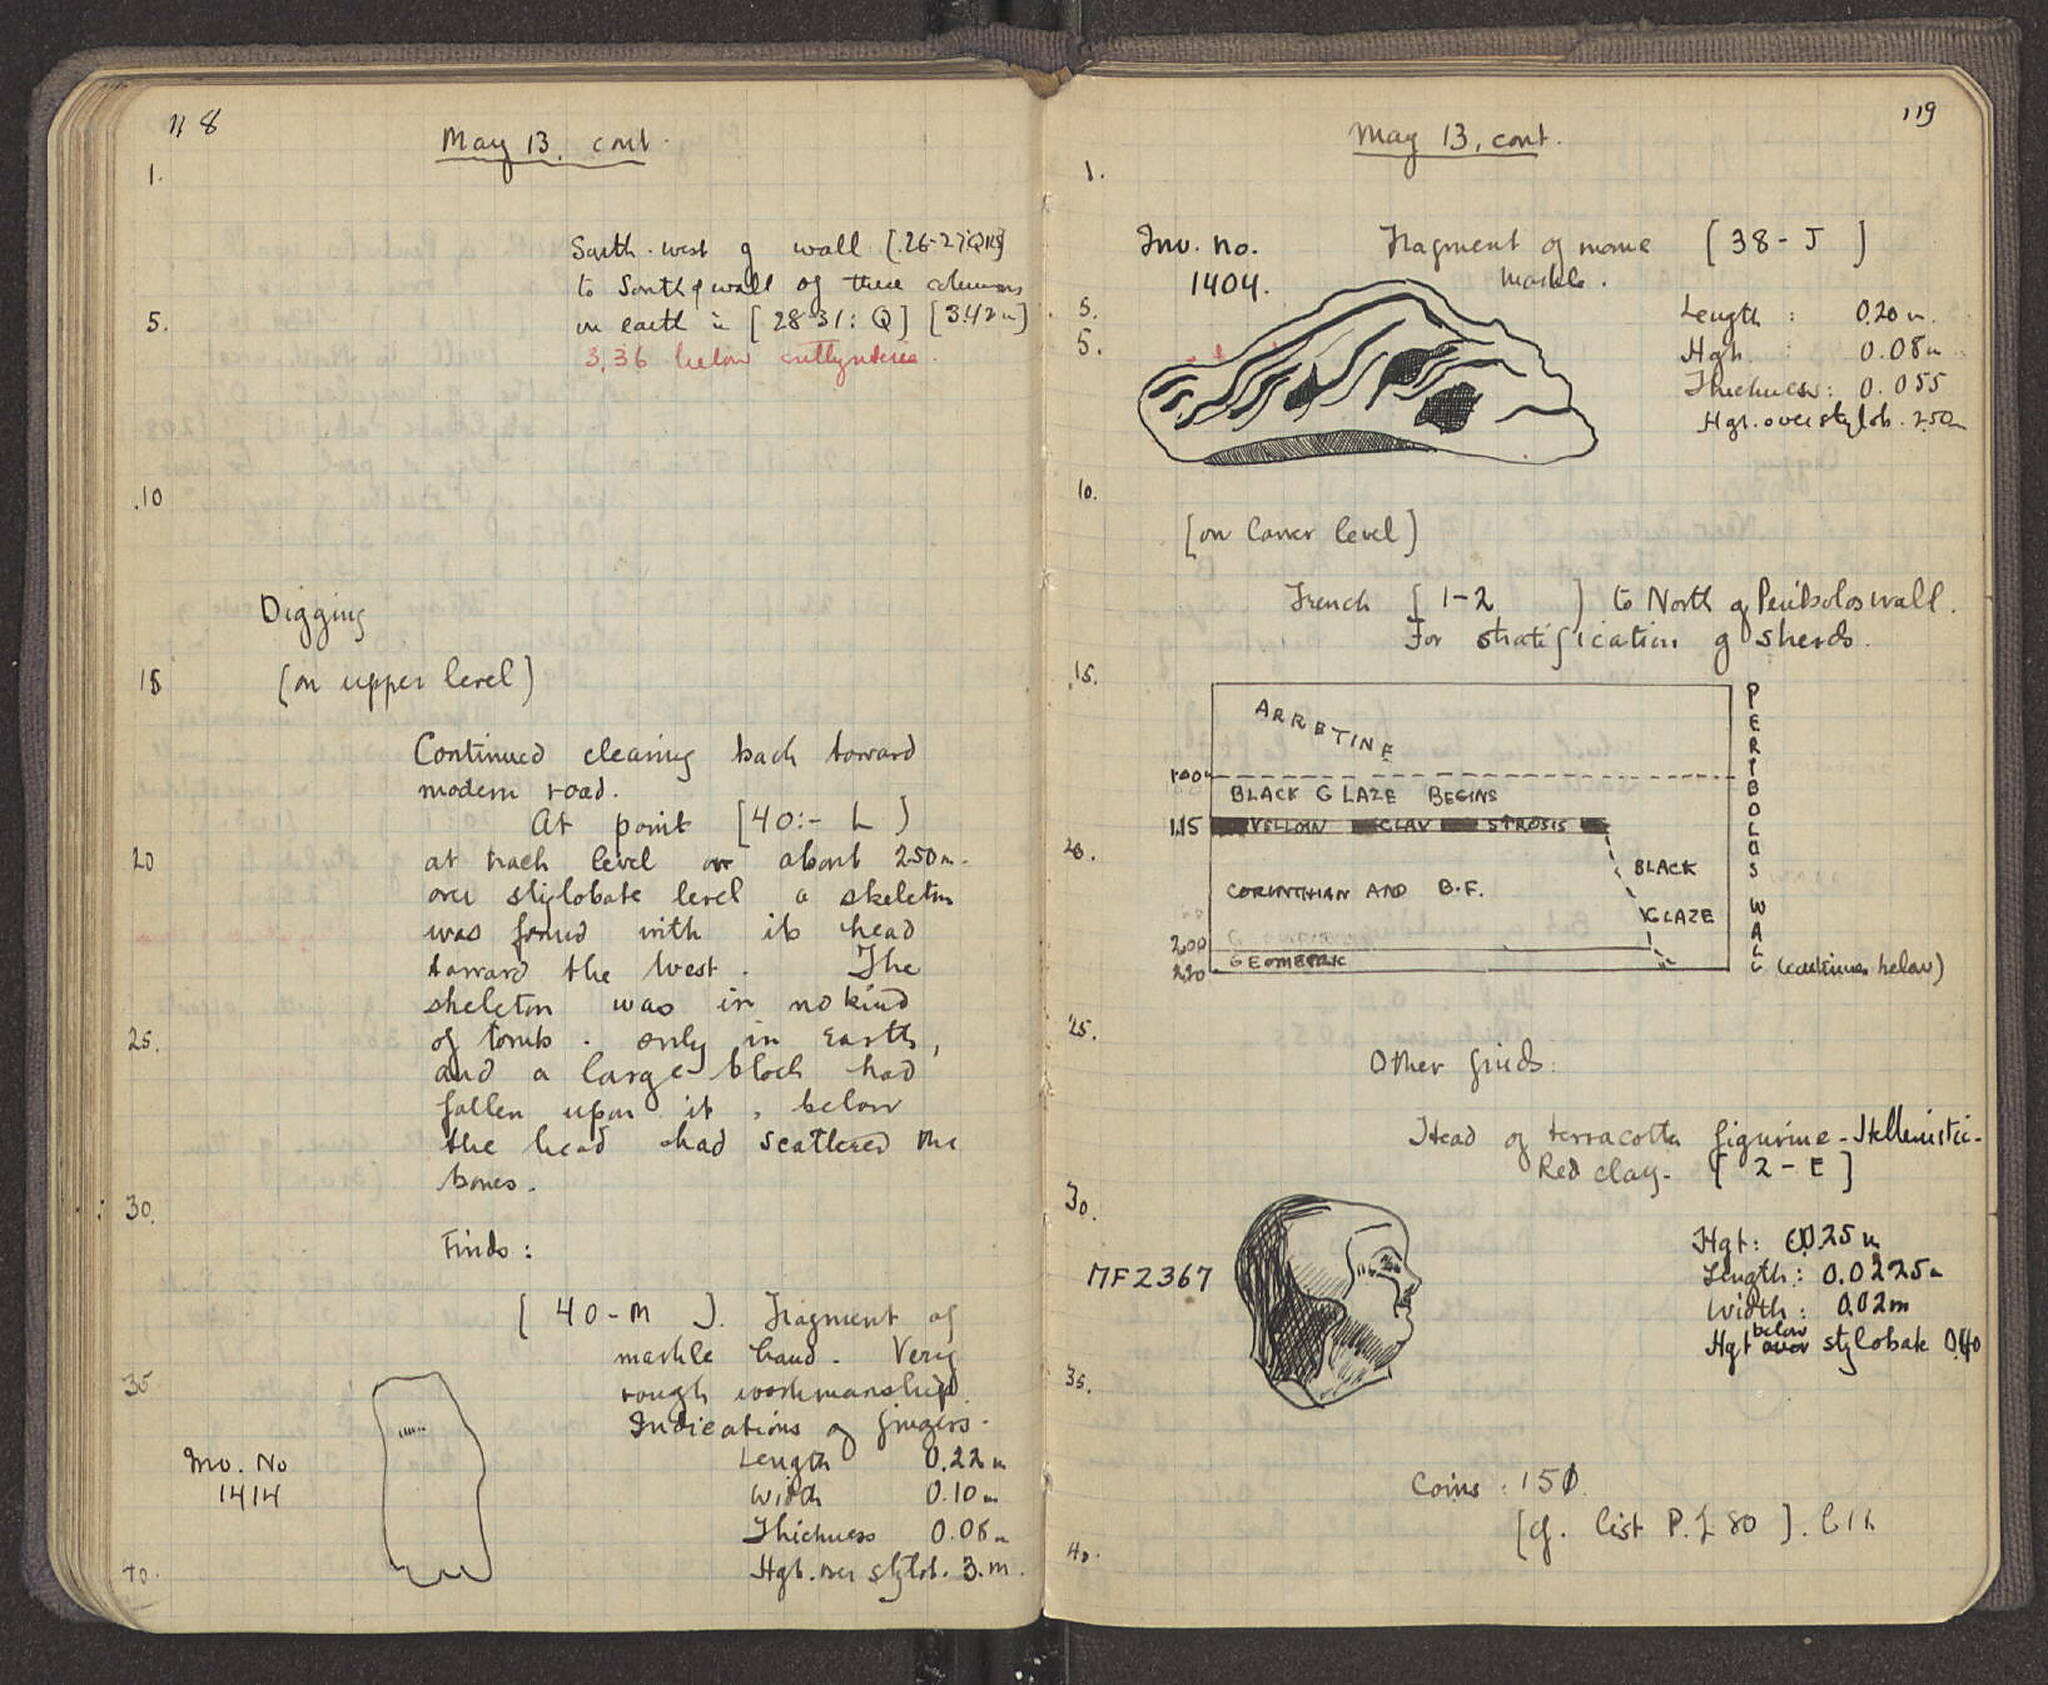 118
May 13. cont.
1.
South-west of wall [26-27:QRS]
to South of wall of three columns
5.
on earth in [28-31: Q] [3.42m]
3.36 below euthynteria.
.10
Digging
15
[on upper level]
Continued clearing back toward
modern road.
At point [40:- L ]
20
at track level or about 2.50m.
over stylobate level a skeleton
was found with its head
toward the West. The
skeleton was in no kind
25.
of tomb. only in earth,
and a large block had
fallen upon it, below
the head had scattered the
bones.
30.
Finds:
[ 40-M ]. Fragment of
marble hand. Very
35
rough workmanship.
Indications of fingers.
Inv. No
1414
Length 0.22m
Width 0.10m
Thickness 0.06m
Hgt. over stylob. 3.m.
40.
119
May 13, cont.
1.
Inv. no.
1404.
Fragment of mane [38-J ]
Marble.
5.
5.
Length : 0.20m.
Hgh. : 0.08m
Thickness: 0.055
Hgt. over stylob. 2.50m
10.
[on lower level]
Trench [ 1-2 ] to North of Peribolos wall.
For stratification of sherds.
.15.
ARRETINE
1.00
BLACK GLAZE BEGINS
1.15
YELLOW CLAY STROSIS
20.
BLACK
GLAZE
CORINTHIAN AND B.F.
2.00
GEOMETRIC
2.20
PERIBOLOS WALL
(continues below)
25.
Other finds:
Head of terracotta figurine - Hellenistic.
Red clay. [ 2-E ]
30.
MF2367
Hgt: 0.025m
Length: 0.0225m
Width: 0.02m
below
Hgt over stylobate 0.40
35.
Coins: 150.
[cf. list P.
40.